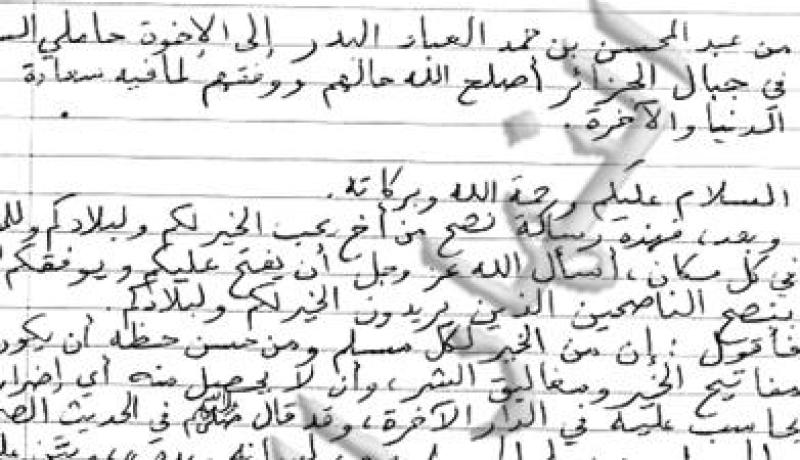 من عبد المحسن بن حمد العباد البدر إلى الإخوة حاملي الس
في جبال الجزائر أصلح الله حالهم ووفقهم لما فيه سعادة
الدنيا والآخرة .
السلام عليكم ورحمة الله وبركاته .
وبعد، فهذه رسالة نصح من أخ يحب الخير لكم ولبلادكم وللم
في كل مكان، أسأل الله عز وجل أن يفتح عليكم ويوفقكم
بنصح الناصحين الذين يريدون الخير لكم ولبلادكم.
فأقول : إن من الخير لكل مسلم ومن حسن حظه أن يكو
مفاتيح الخير ومغاليق الشر، وأن لا يحصل منه أي إضرار
يحاسب عليه في الدار الآخرة، وقد قال ﷺ في الحديث الص